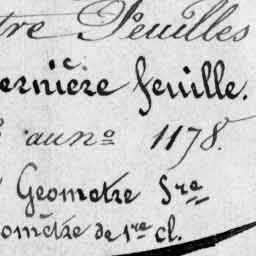 tre Feuilles
ernière feuille.
au no 1178.
Géometre
omètre de 1re cl.